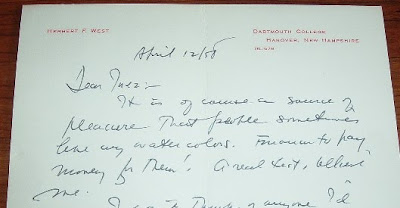 HERBERT F. WEST
DARTMOUTH COLLEGE
HANOVER, NEW HAMPSHIRE
April 12/58
Dear Inez:-
It is of course a source of
pleasure that people sometimes
like my water colors. Enough to pay
money for them! A real test, believe
me.
or anyone I'd